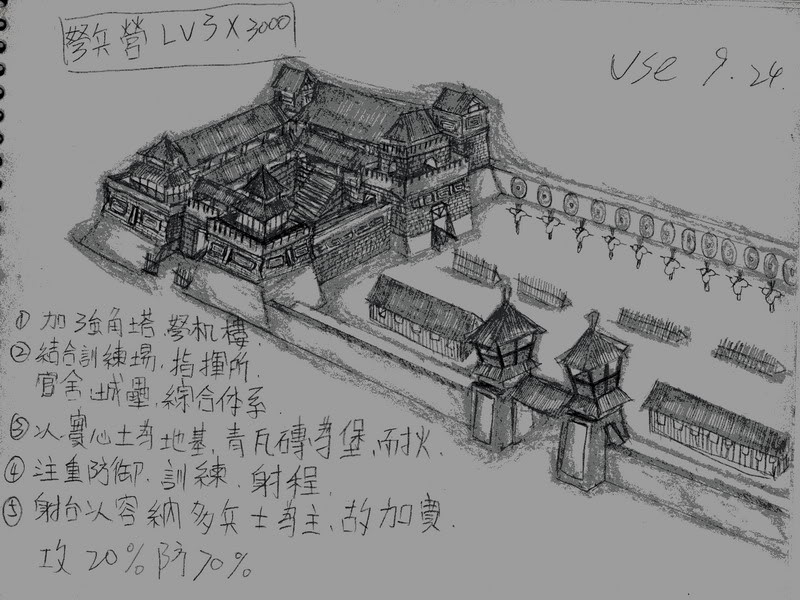 弩兵營 LV3 X 3000
USE 9.24.
① 加強角塔.弩机樓.
② 結合訓練場.指揮所.
官舍.城壘.綜合体系.
③ 以實心土為地基.青瓦磚為堡.耐火.
④ 注重防御.訓練.射程.
⑤ 射台以容納多兵士為主.故加寬.
攻20% 防70%